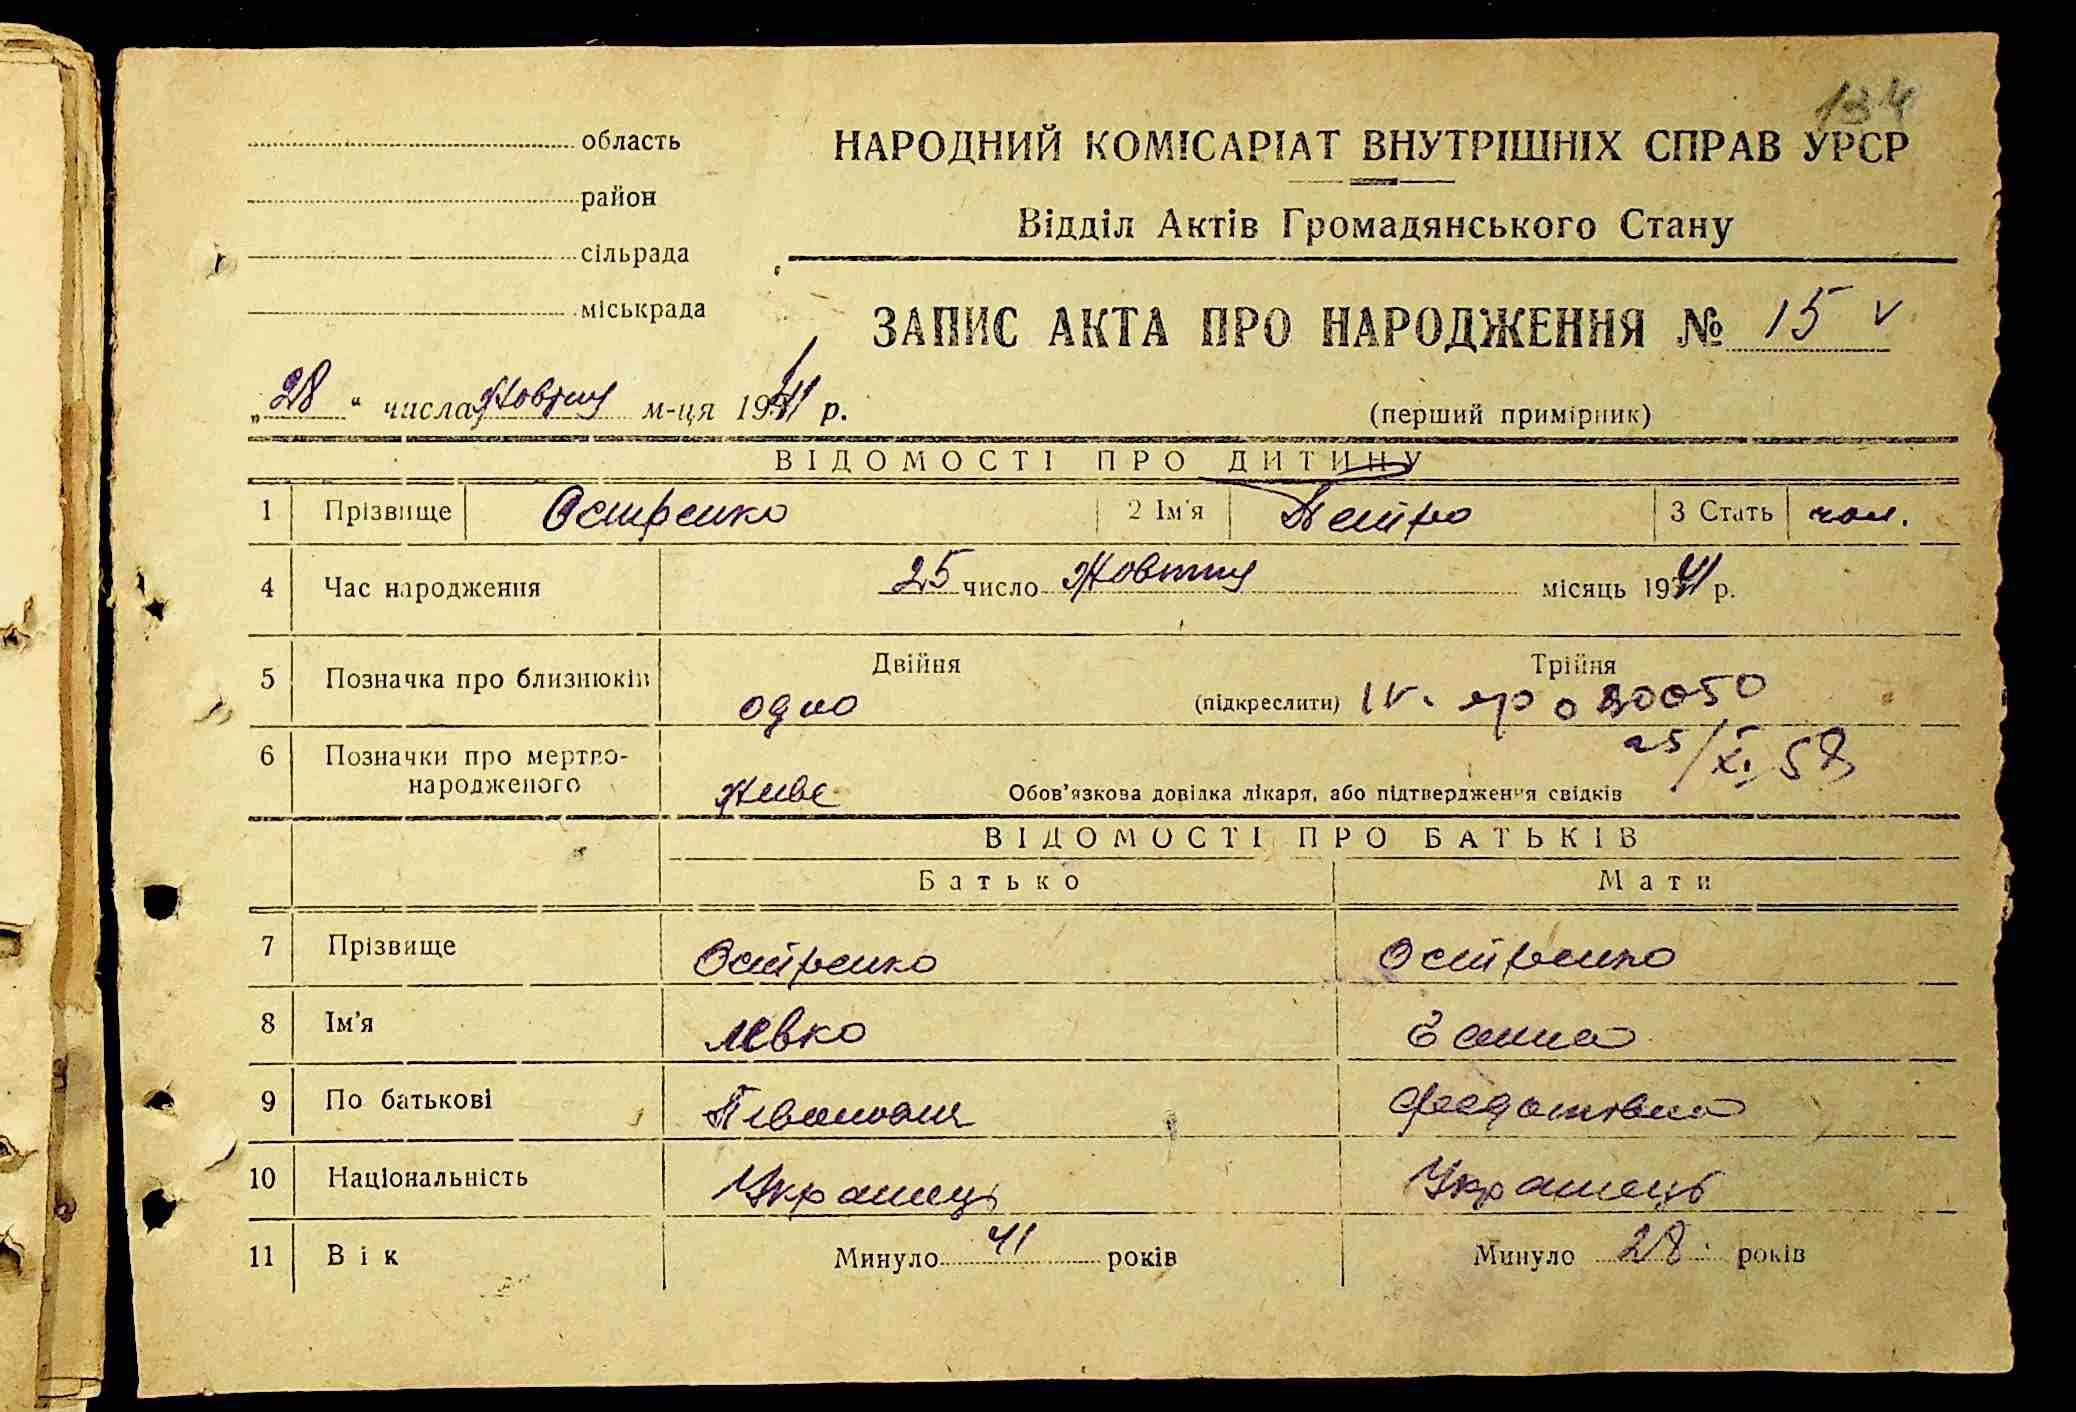 134
область
район
сільрада
міськрада
НАРОДНИЙ КОМІСАРІАТ ВНУТРІШНІХ СПРАВ УРСР
Відділ Актів Громадянського Стану
ЗАПИС АКТА ПРО НАРОДЖЕННЯ № 15 v
„28“ числа Жовтня м-ця 1941 р.
(перший примірник)
ВІДОМОСТІ ПРО ДИТИНУ
1 Прізвище Остренко 2 Ім'я Петро 3 Стать чол.
4 Час народження 25 число Жовтня місяць 1941 р.
5 Позначка про близнюків Двійня Трійня
одно (підкреслити) IV. 030050
25/X. 58
6 Позначки про мертво-
народженого живе Обов'язкова довідка лікаря, або підтвердження свідків
ВІДОМОСТІ ПРО БАТЬКІВ
Батько Мати
7 Прізвище Остренко Остренко
8 Ім'я Левко Ганна
9 По батькові Іванович Федотовна
10 Національність Українець Українець
11 Вік Минуло 41 років Минуло 28 років